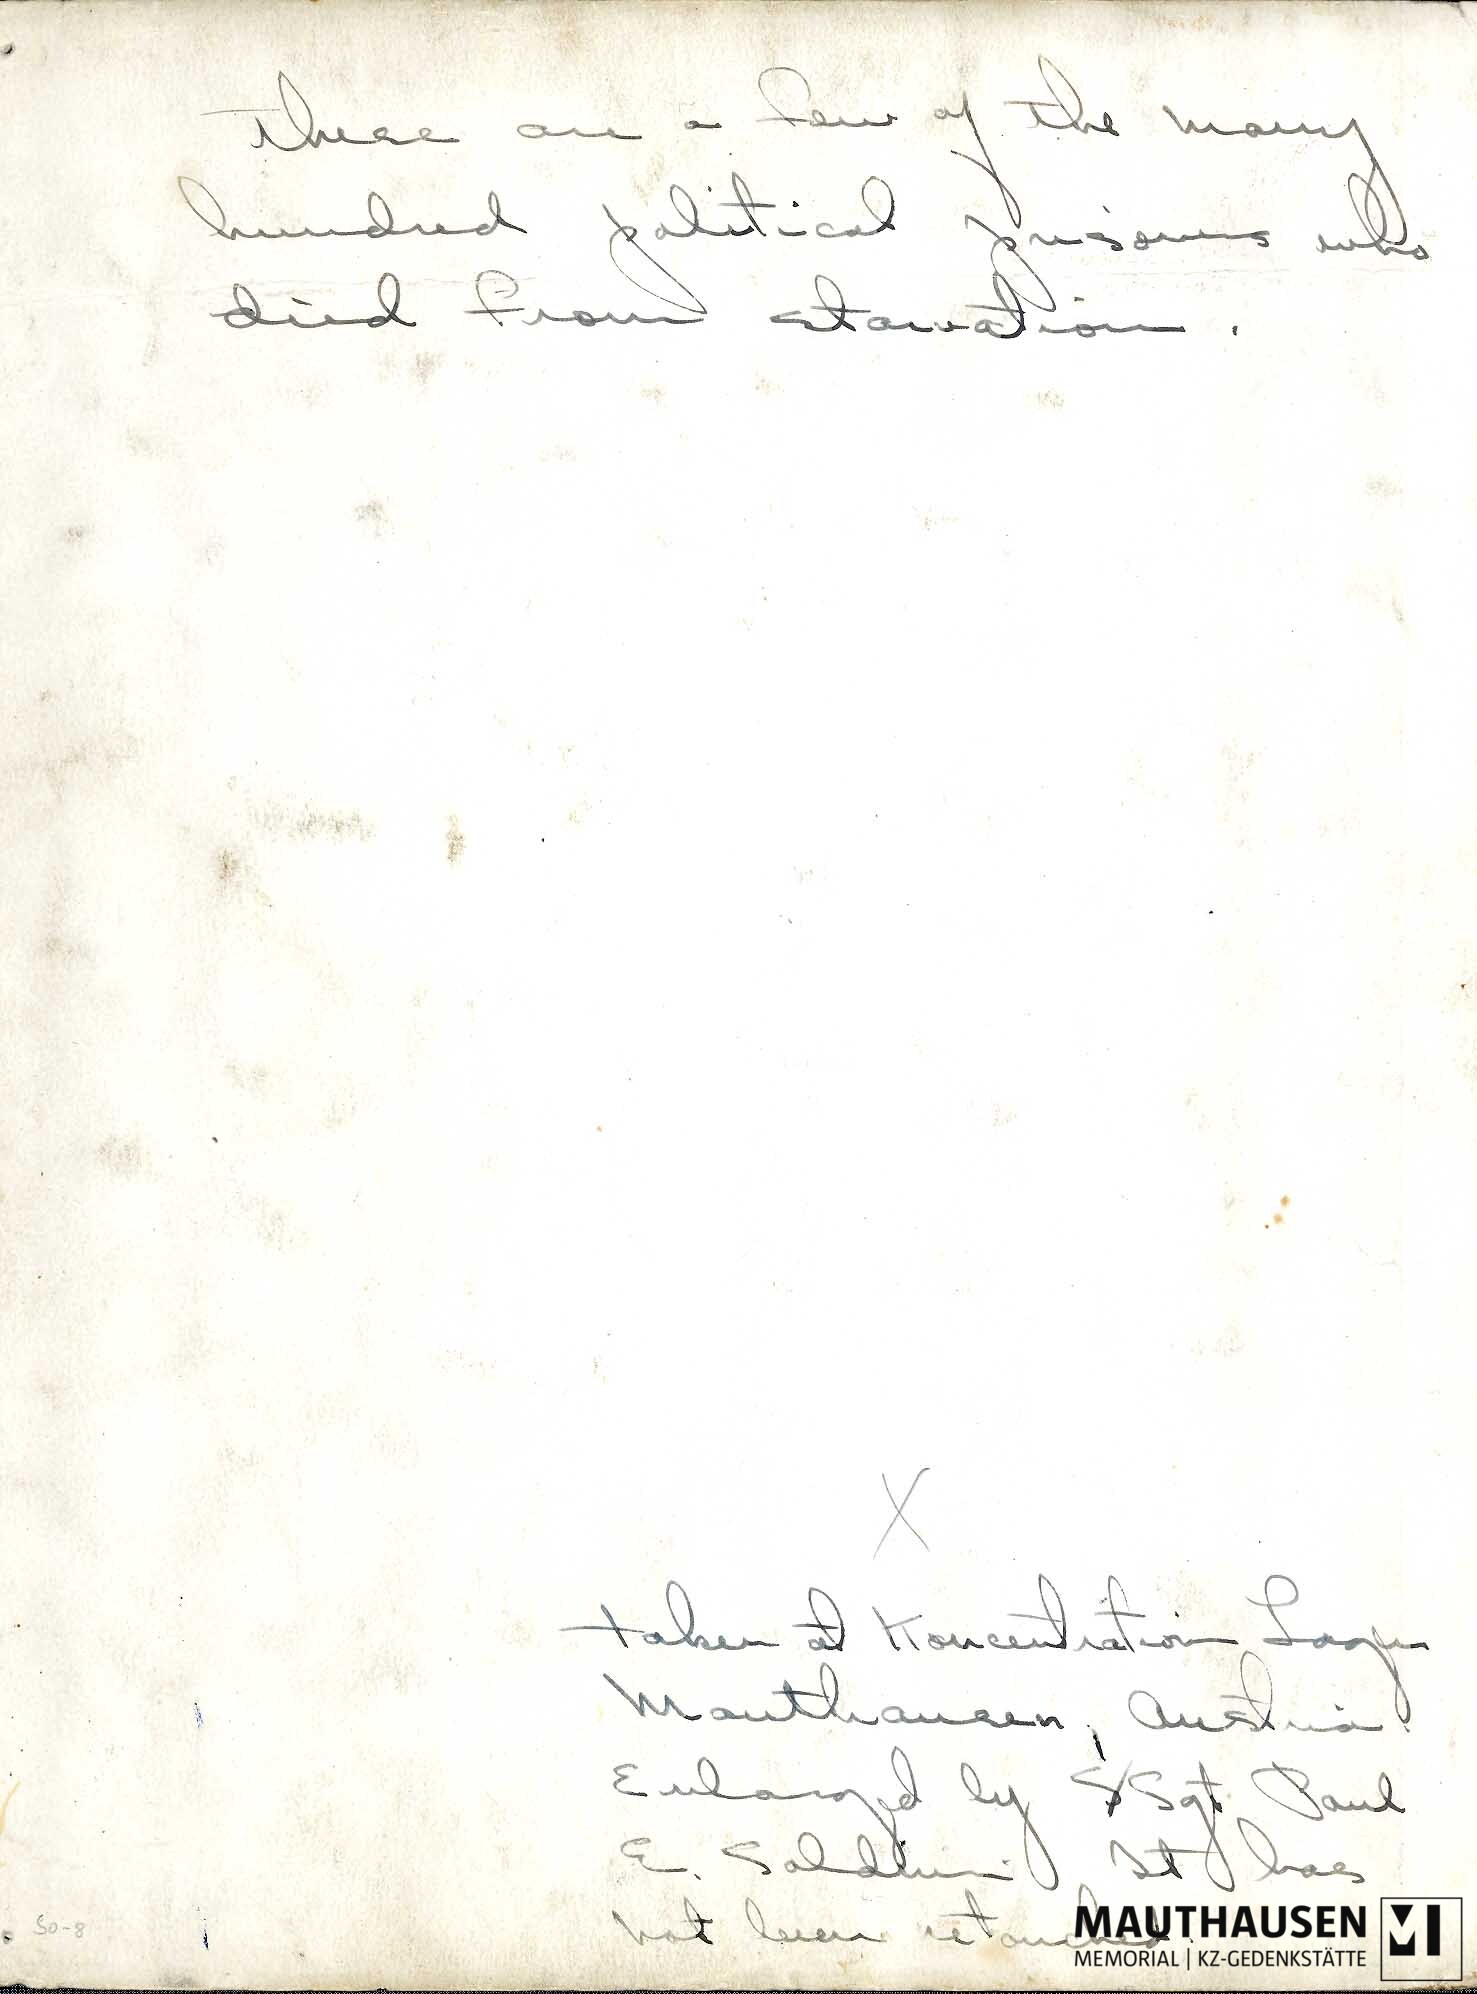 these are a few of the many
hundred political prisoners who
died from starvation.
X
taken at Koncentration Lager
Mauthausen, Austria.
Enlarged by S/Sgt. Paul
E. Soldner. It has
not been retouched.
50-8
MAUTHAUSEN
MEMORIAL | KZ-GEDENKSTÄTTE